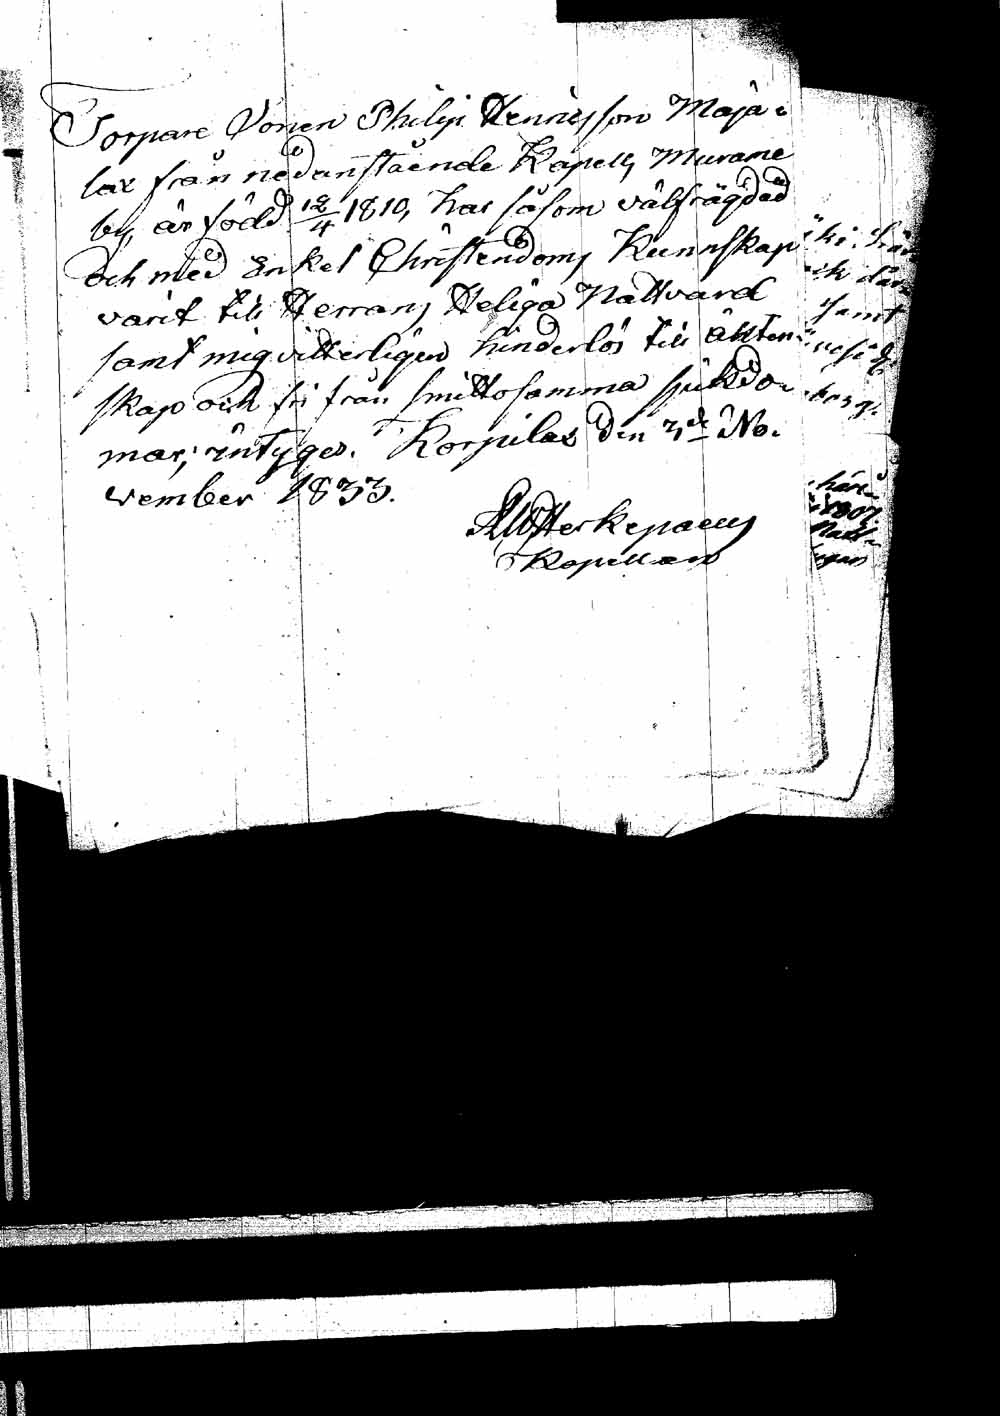 Torpare Sonen Philip Henricsson Maja-
lax från nedanstående Kapells Murame
by, är född 12/4 1810, har såsom välfrägdad
och med Enkel Christendoms Kunnskap
varit till Herrans Heliga Nattvard
samt mig vitterligen hinderlös till äkten-
skap och fri från smittosamma sjukdo-
mar; intyges. Korpilax den 3de No-
vember 1833.
Kapellan
samt
1807